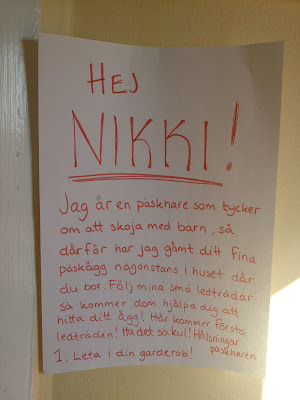 HEJ
NIKKI!
Jag är en påskhare som tycker
om att skoja med barn, så
därför har jag gömt ditt fina
påskägg någonstans i huset där
du bor. Följ mina små ledtrådar
så kommer dom hjälpa dig att
hitta ditt ägg! Här kommer första
ledtråden! Ha det så kul! Hälsningar
påskharen
1. Leta i din garderob!